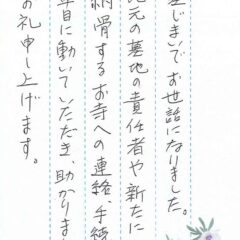 墓じまいでお世話になりました。
元の墓地の責任者や新たに
納骨するお寺への連絡、手続
目に動いていただき、助かりま
お礼申し上げます。